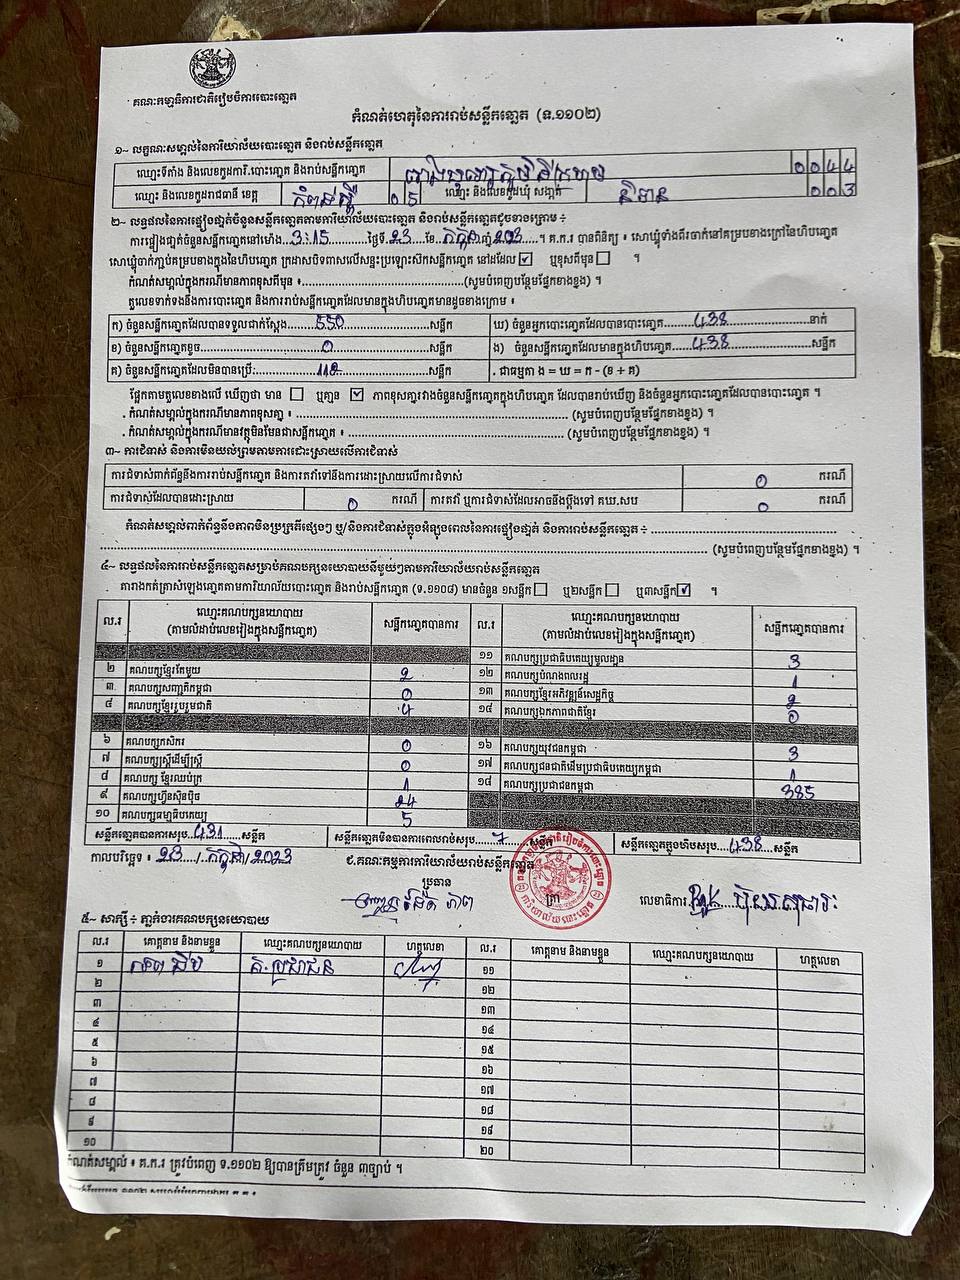 គណៈកម្មាធិការជាតិរៀបចំការបោះឆ្នោត
កំណត់ហេតុនៃការរាប់សន្លឹកឆ្នោត (ទ.១១០២)
១~ លក្ខណៈសម្គាល់នៃការិយាល័យបោះឆ្នោត និងរាប់សន្លឹកឆ្នោត
ឈ្មោះទីតាំង និងលេខកូដការិ.បោះឆ្នោត និងរាប់សន្លឹកឆ្នោត 0 0 4 4
ឈ្មោះ និងលេខកូដរាជធានី ខេត្ត កំពង់ស្ពឺ 0 5 ឈ្មោះ និងលេខកូដឃុំ សង្កាត់ 0 0 3
២~ លទ្ធផលនៃការផ្ទៀងផ្ទាត់ចំនួនសន្លឹកឆ្នោតតាមការិយាល័យបោះឆ្នោត និងរាប់សន្លឹកឆ្នោតដូចខាងក្រោម ៖
ការផ្ទៀងផ្ទាត់ចំនួនសន្លឹកឆ្នោតនៅម៉ោង 3:15 ថ្ងៃទី 23 ខែ កក្កដា ឆ្នាំ 2023 ។ គ.ក.រ បានពិនិត្យ ៖ សោឃ្លុំទាំងពីរចាក់នៅគម្របខាងក្រៅនៃហិបឆ្នោត
សោឃ្លុំចាក់ភ្ជាប់គម្របខាងក្នុងនៃហិបឆ្នោត ក្រដាសបិទពាសលើសន្ទះប្រឡោះស៊ីកសន្លឹកឆ្នោត នៅដដែល ☑ ឬខុសពីមុន ☐ ។
កំណត់សម្គាល់ក្នុងករណីមានភាពខុសពីមុន ៖ (សូមបំពេញបន្ថែមផ្នែកខាងខ្នង) ។
តួលេខទាក់ទងនឹងការបោះឆ្នោត និងការរាប់សន្លឹកឆ្នោតដែលមានក្នុងហិបឆ្នោតមានដូចខាងក្រោម ៖
ក) ចំនួនសន្លឹកឆ្នោតដែលបានទទួលជាក់ស្តែង 550 សន្លឹក ឃ) ចំនួនអ្នកបោះឆ្នោតដែលបានបោះឆ្នោត 438 នាក់
ខ) ចំនួនសន្លឹកឆ្នោតខូច 0 សន្លឹក ង) ចំនួនសន្លឹកឆ្នោតដែលមានក្នុងហិបឆ្នោត 438 សន្លឹក
គ) ចំនួនសន្លឹកឆ្នោតដែលមិនបានប្រើ: 112 សន្លឹក . ជាធម្មតា ង = ឃ = ក - (ខ + គ)
ផ្អែកតាមតួលេខខាងលើ ឃើញថា មាន ☐ ឬគ្មាន ☑ ភាពខុសគ្នារវាងចំនួនសន្លឹកឆ្នោតក្នុងហិបឆ្នោត ដែលបានរាប់ឃើញ និងចំនួនអ្នកបោះឆ្នោតដែលបានបោះឆ្នោត ។
. កំណត់សម្គាល់ក្នុងករណីមានភាពខុសគ្នា ៖ (សូមបំពេញបន្ថែមផ្នែកខាងខ្នង) ។
. កំណត់សម្គាល់ក្នុងករណីមានវត្ថុមិនមែនជាសន្លឹកឆ្នោត ៖ (សូមបំពេញបន្ថែមផ្នែកខាងខ្នង) ។
៣~ ការជំទាស់ និងការមិនយល់ព្រមតាមការដោះស្រាយលើការជំទាស់
ការជំទាស់ពាក់ព័ន្ធនឹងការរាប់សន្លឹកឆ្នោត និងការតវ៉ាទៅនឹងការដោះស្រាយលើការជំទាស់ 0 ករណី
ការជំទាស់ដែលបានដោះស្រាយ 0 ករណី ការតវ៉ា ឬការជំទាស់ដែលអាចនឹងប្តឹងទៅ គឃ.សប 0 ករណី
កំណត់សម្គាល់ពាក់ព័ន្ធនឹងភាពមិនប្រក្រតីផ្សេងៗ ឬ/និងការជំទាស់ក្នុងអំឡុងពេលនៃការផ្ទៀងផ្ទាត់ និងការរាប់សន្លឹកឆ្នោត ៖
(សូមបំពេញបន្ថែមផ្នែកខាងខ្នង) ។
៤~ លទ្ធផលនៃការរាប់សន្លឹកឆ្នោតសម្រាប់គណបក្សនយោបាយនីមួយៗតាមការិយាល័យរាប់សន្លឹកឆ្នោត
តារាងកត់ត្រាសំឡេងឆ្នោតតាមការិយាល័យបោះឆ្នោត និងរាប់សន្លឹកឆ្នោត (ទ.១១០៨) មានចំនួន ១សន្លឹក ☐ ឬ២សន្លឹក ☐ ឬ៣សន្លឹក ☑ ។
ល.រ ឈ្មោះគណបក្សនយោបាយ (តាមលំដាប់លេខរៀងក្នុងសន្លឹកឆ្នោត) សន្លឹកឆ្នោតបានការ ល.រ ឈ្មោះគណបក្សនយោបាយ (តាមលំដាប់លេខរៀងក្នុងសន្លឹកឆ្នោត) សន្លឹកឆ្នោតបានការ
១១ គណបក្សប្រជាធិបតេយ្យមូលដ្ឋាន 3
២ គណបក្សខ្មែរតែមួយ 2 ១២ គណបក្សបំណងពលរដ្ឋ 1
៣ គណបក្សសញ្ជាតិកម្ពុជា 0 ១៣ គណបក្សខ្មែរអភិវឌ្ឍន៍សេដ្ឋកិច្ច 2
៤ គណបក្សខ្មែររួបរួមជាតិ 4 ១៤ គណបក្សឯកភាពជាតិខ្មែរ 0
៦ គណបក្សកសិករ 0 ១៦ គណបក្សយុវជនកម្ពុជា 3
៧ គណបក្សស្ត្រីដើម្បីស្ត្រី 0 ១៧ គណបក្សជនជាតិដើមប្រជាធិបតេយ្យកម្ពុជា 1
៨ គណបក្ស ខ្មែរឈប់ក្រ 1 ១៨ គណបក្សប្រជាជនកម្ពុជា 385
៩ គណបក្សហ៊្វុនស៊ិនប៉ិច 24
១០ គណបក្សធម្មាធិបតេយ្យ 5
សន្លឹកឆ្នោតបានការសរុប 431 សន្លឹក សន្លឹកឆ្នោតមិនបានការពេលរាប់សរុប 7 សន្លឹក សន្លឹកឆ្នោតក្នុងហិបសរុប 438 សន្លឹក
កាលបរិច្ឆេទ ៖ 23 / កក្កដា / 2023 ជ.គណៈកម្មការការិយាល័យរាប់សន្លឹកឆ្នោត
ប្រធាន ត្រា លេខាធិការ
៥~ សាក្សី: ភ្នាក់ងារគណបក្សនយោបាយ
ល.រ គោត្តនាម និងនាមខ្លួន ឈ្មោះគណបក្សនយោបាយ ហត្ថលេខា ល.រ គោត្តនាម និងនាមខ្លួន ឈ្មោះគណបក្សនយោបាយ ហត្ថលេខា
១ គ.ប្រជាជន ១១
២ ១២
៣ ១៣
៤ ១៤
៥ ១៥
៦ ១៦
៧ ១៧
៨ ១៨
៩ ១៩
១០ ២០
កំណត់សម្គាល់ ៖ គ.ក.រ ត្រូវបំពេញ ទ.១១០២ ឱ្យបានត្រឹមត្រូវ ចំនួន ៣ច្បាប់ ។